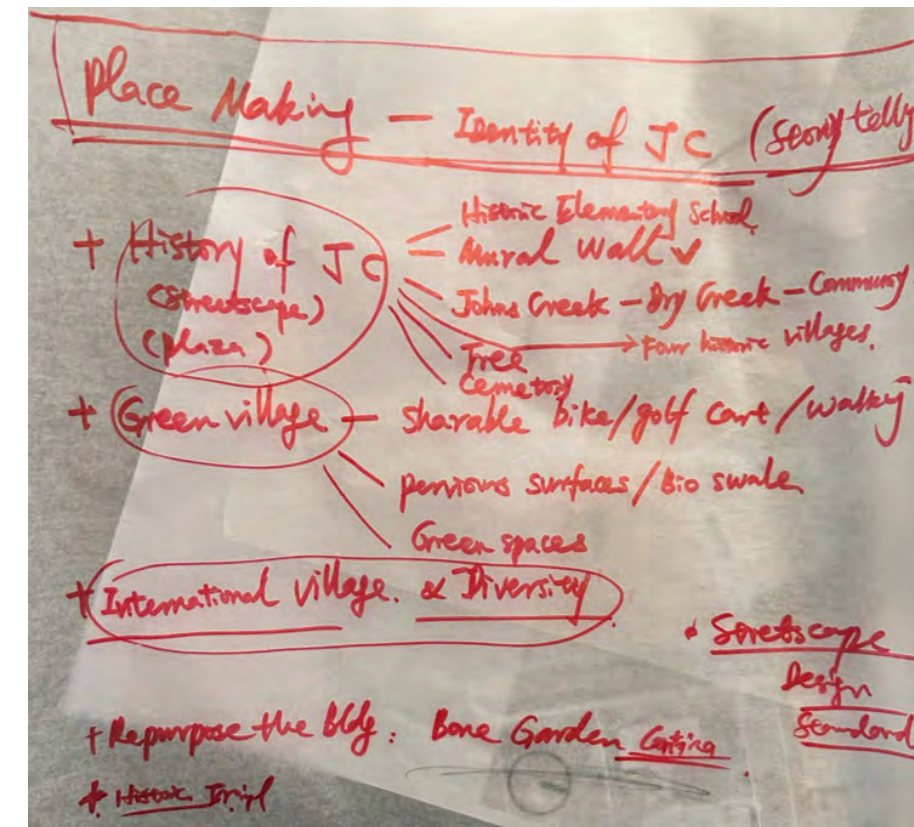 Place Making — Identity of JC (Story telly
+ History of JC
(streetscape)
(plaza)
Historic Elementary School
Mural Wall ✓
Johns Creek – Dry Creek – Community
→ Four historic villages.
Tree
Cemetory
+ Green village — sharable bike/golf cart/walking
pervious surfaces/Bio swale
Green spaces
+ International village. & Diversity
+ Streetscape
Design
Standard
+ Repurpose the bldg: Bone Garden Cantina
+ Historic